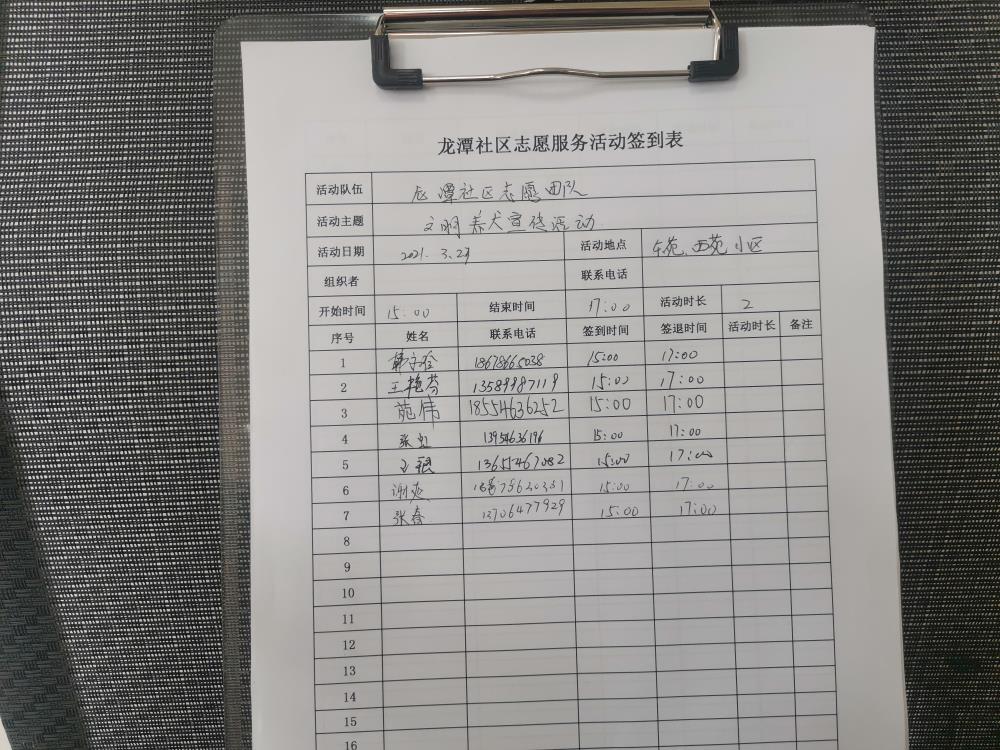 龙潭社区志愿服务活动签到表
活动队伍 龙潭社区志愿团队
活动主题 文明养犬宣传活动
活动日期 2021.3.27 活动地点 东苑、西苑小区
组织者 联系电话
开始时间 15:00 结束时间 17:00 活动时长 2
序号 姓名 联系电话 签到时间 签退时间 活动时长 备注
1 18678665038 15:00 17:00
2 王艳芬 13589987119 15:00 17:00
3 施伟 18554636252 15:00 17:00
4 张虹 13954636196 15:00 17:00
5 13655467082 15:00 17:00
6 谢爽 15:00 17:00
7 张春 13706477929 15:00 17:00
8
9
10
11
12
13
14
15
16